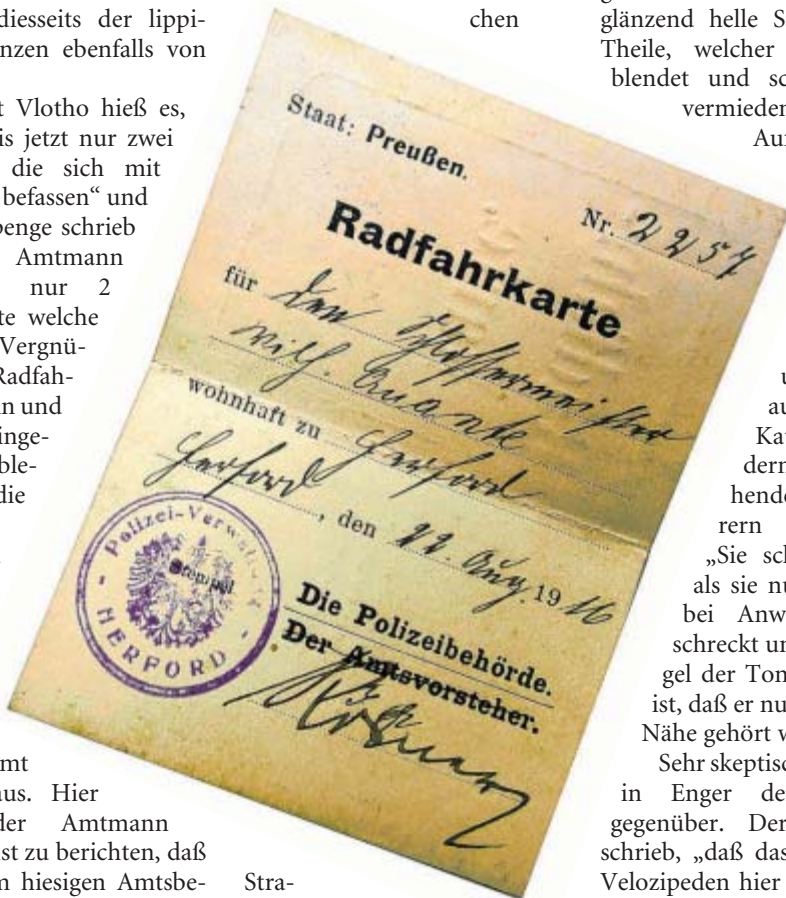 diesseits der lippi-
nzen ebenfalls von
t Vlotho hieß es,
is jetzt nur zwei
die sich mit
befassen“ und
enge schrieb
Amtmann
nur 2
te welche
Vergnü-
Radfah-
n und
inge-
ble-
die
mt
aus. Hier
der Amtmann
ist zu berichten, daß
m hiesigen Amtsbe-
chen
Stra-
Staat: Preußen.
Nr. 2257
Radfahrkarte
für den Schlossermeister
Wilh. Quante
wohnhaft zu Herford
Herford, den 22. Aug. 1916
Polizei-Verwaltung
HERFORD
Stempel
Die Polizeibehörde.
Der Amtsvorsteher.
glänzend helle S
Theile, welcher
blendet und sc
vermieden
Auf
u
au
Kat
dern
hende
rern
„Sie sch
als sie nu
bei Anw
schreckt un
gel der Ton
ist, daß er nu
Nähe gehört w
Sehr skeptisc
in Enger de
gegenüber. Der
schrieb, „daß das
Velozipeden hier